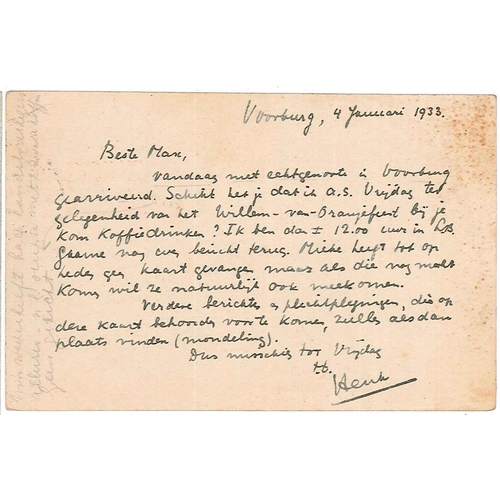 Voorburg, 4 Januari 1933.
Beste Max,
Vandaag met echtgenoote in Voorburg
gearriveerd. Schikt het je dat ik a.s. Vrijdag ter
gelegenheid van het Willem-van-Oranjefeest bij je
kom koffiedrinken? Ik ben dan ± 12.00 uur in
gaarne nog even bericht terug. Mieke heeft tot op
heden geen kaart gevangen maar als die nog mocht
komen wil ze natuurlijk ook meekomen.
Verdere berichten en plechtplegingen, die op
deze kaart behooren voor te komen, zullen alsdan
plaats vinden (mondeling).
Dus misschien tot Vrijdag
t.t.
Henk